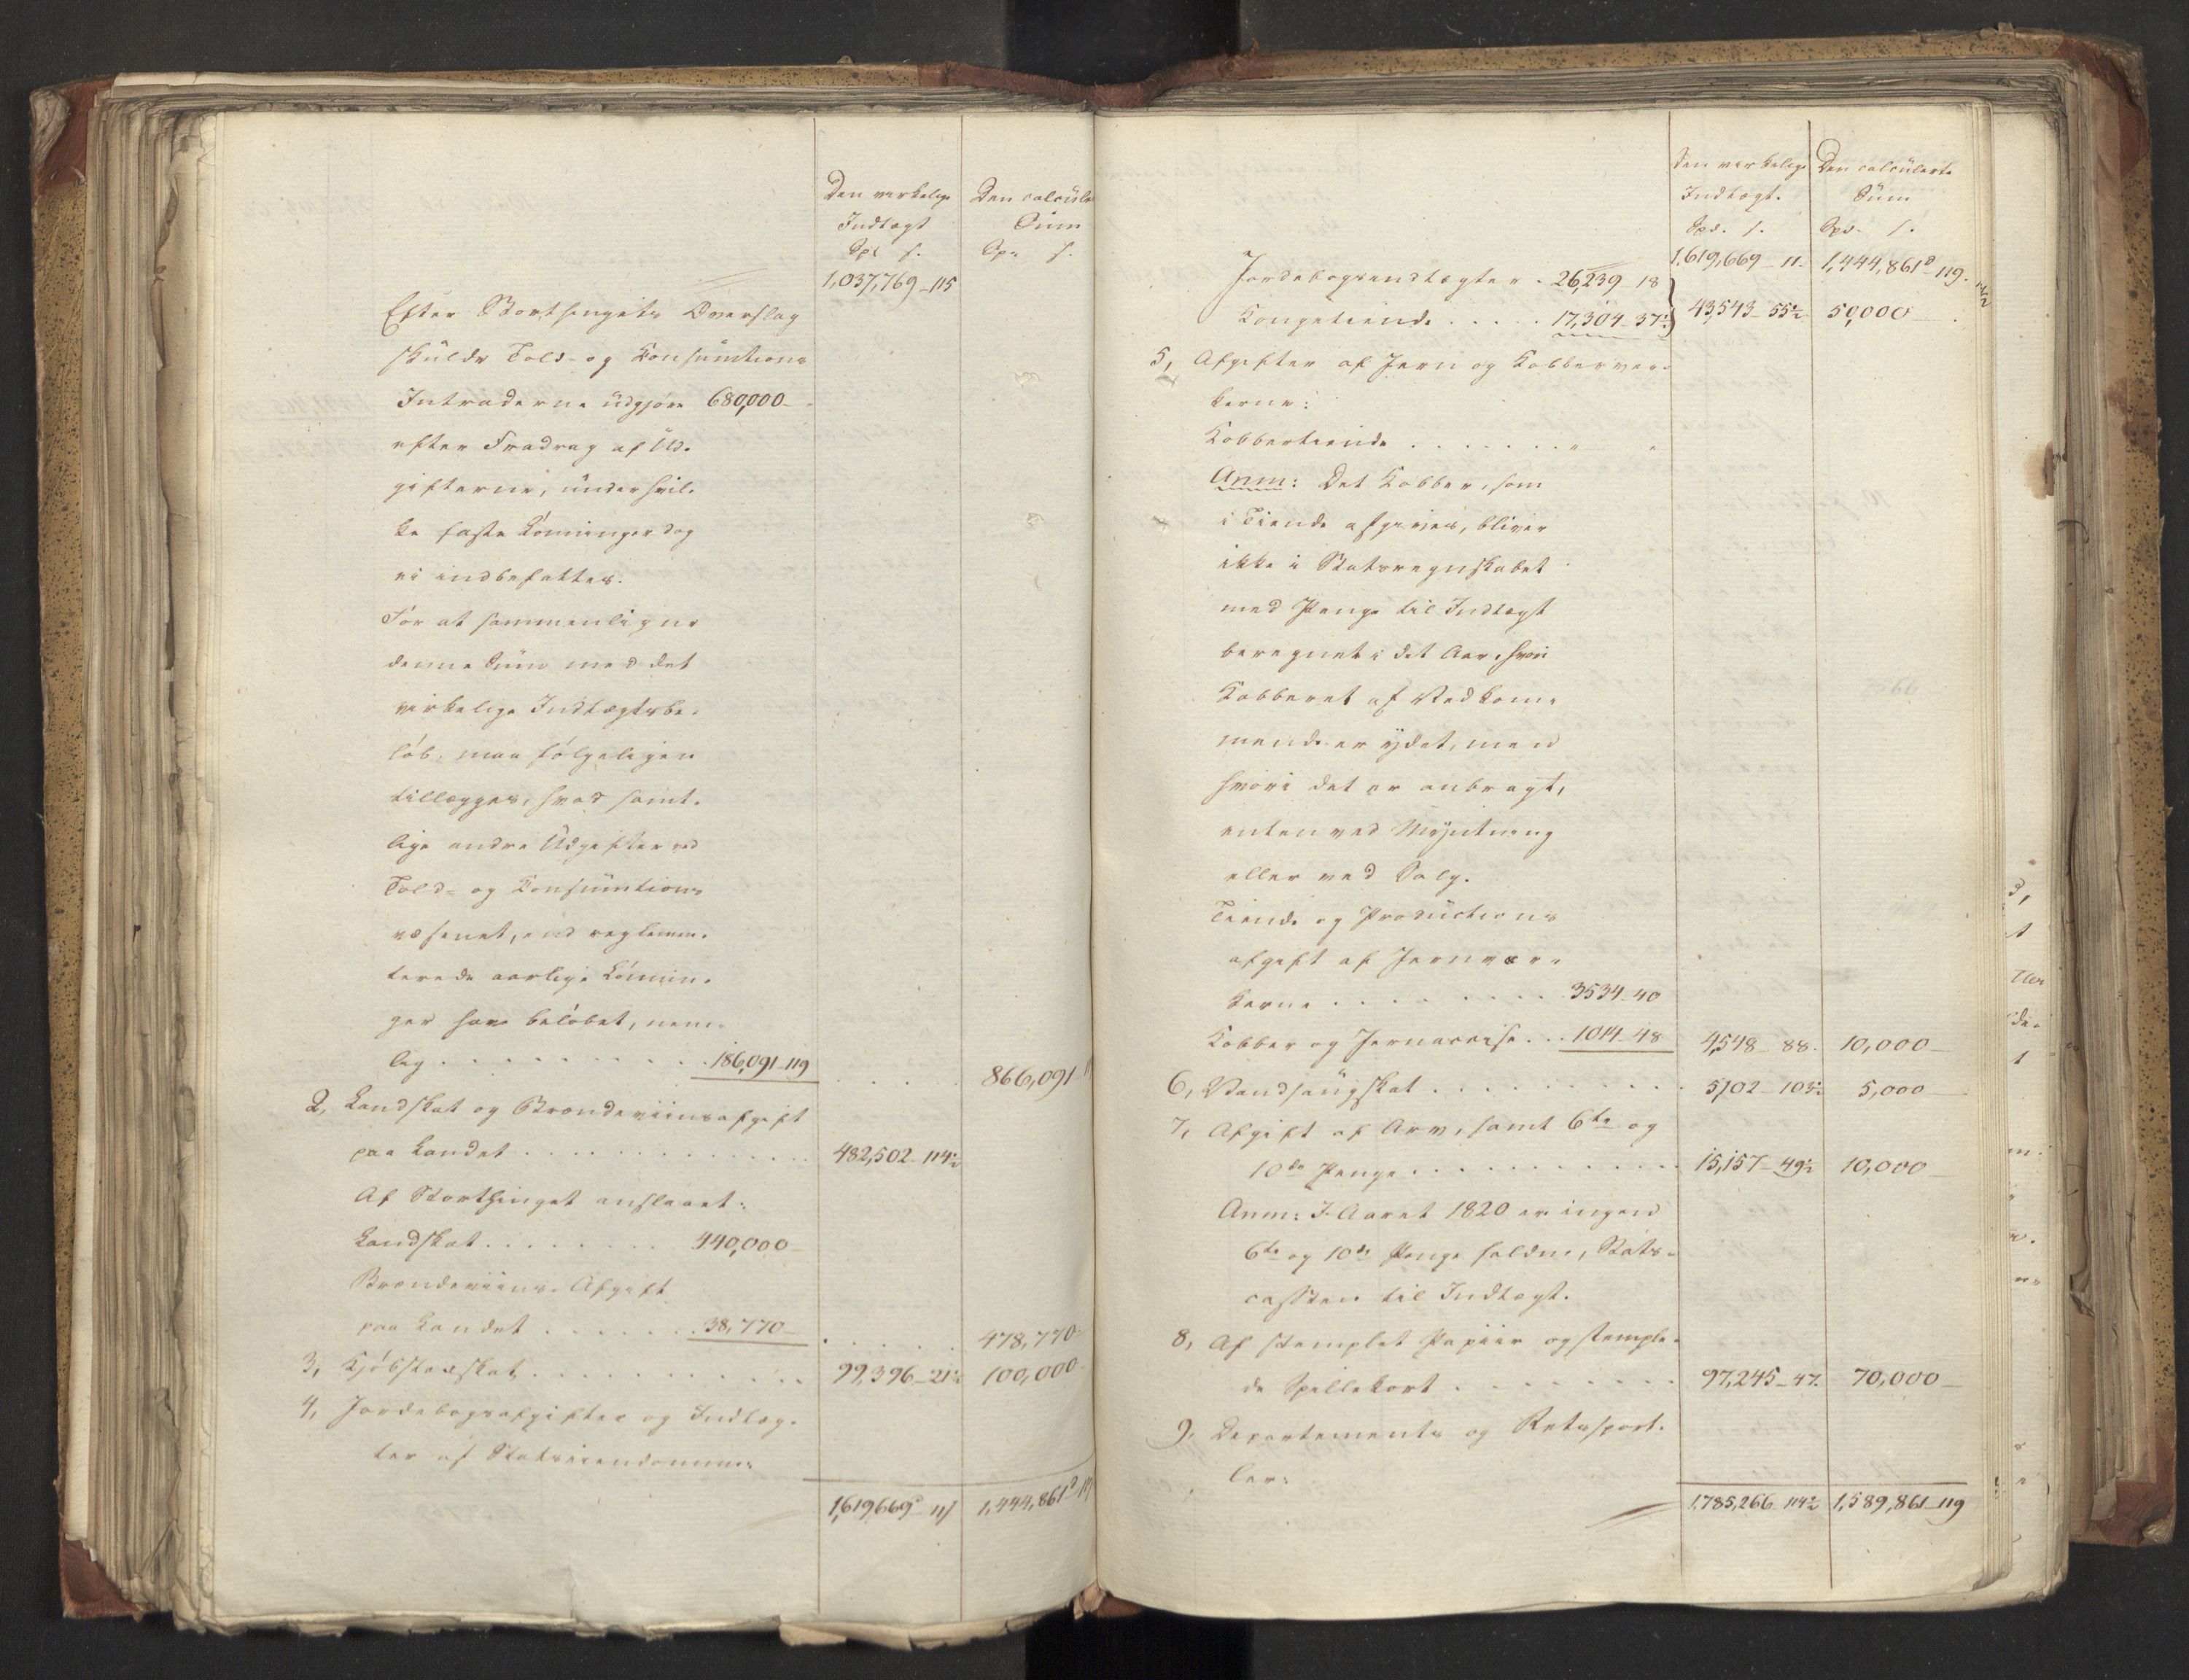 Den virkelige
Indtægt
Spd s.
Den calcule
Sum
Spd s.
1,037,769 - 115
Efter Storthingets Overslag
skulde Told- og Consumtions
Intraderne udgjøre 680,000 -
efter Fradrag af Ud-
gifterne, under hvil-
ke faste Lønninger dog
ei indbefattes.
For at sammenligne
denne Sum med det
virkelige Indtægtsbe-
løb, maa følgeligen
tillægges, hvad samt-
lige andre Udgifter ved
Told- og Consumtions
væsenet, end reglemen-
terede aarlige Lønnin-
ger have beløbet, nem-
lig . . . . . . . . . 186,091 - 119 . . . . 866,091 - 11
2, Landskat og Brændeviinsafgift
paa Landet . . . . . . . . . . . . 482,502 - 114½
Af Storthinget anslaaet:
Landskat . . . . . . . . 440,000 -
Brændeviins-Afgift
paa Landet . . . . . . 38,770 - . . . . . 478,770 -
3, Kjøbstadskat . . . . . . . . . . . 99,396 - 21½ 100,000 -
4, Jordebogsafgifter og Indtæg-
ter af Statseiendomme:
1,619,669 - 11 1,444,861 - 119
Den virkelige
Indtægt.
Spd. s.
Den calculerte
Sum
Spd. s.
1,619,669 - 11 - 1,444,861 - 119.
Jordebogsindtægter . 26,239 - 18
Kongetiende . . . . . 17,304 - 37½ 43,543 - 55½ 50,000 -
5, Afgifter af Jern og Kobberver-
kerne:
Kobbertiende . . . . . . . " "
Anm: Det Kobber, som
i Tiende afgives, bliver
ikke i Statsregnskabet
med Penge til Indtægt
beregnet i det Aar, hvori
Kobberet af Vedkom-
mende er ydet, men
hvori det er anbragt,
enten ved Myntning
eller ved Salg.
Tiende og Productions
afgift af Jernvær-
kerne . . . . . . . . . 3534 - 40
Kobber og Jernaccise . . . 1014 - 48 4,548 - 88 - 10,000 -
6, Vandsaugskat . . . . . . . . . . 5,102 - 103½ 5,000 -
7, Afgift af Arv, samt 6te og
10de Penge . . . . . . . . . . . 15,157 - 49½ 10,000 -
Anm: I Aaret 1820 er ingen
6te og 10de Penge faldne, Stats-
cassen til Indtægt.
8, Af stemplet Papiir og stemple-
de Spillekort . . . . . . . . 97,245 - 47. 70,000 -
9, Departements og Retssport-
ler:
1,785,266 - 114½ 1,589,861 - 119